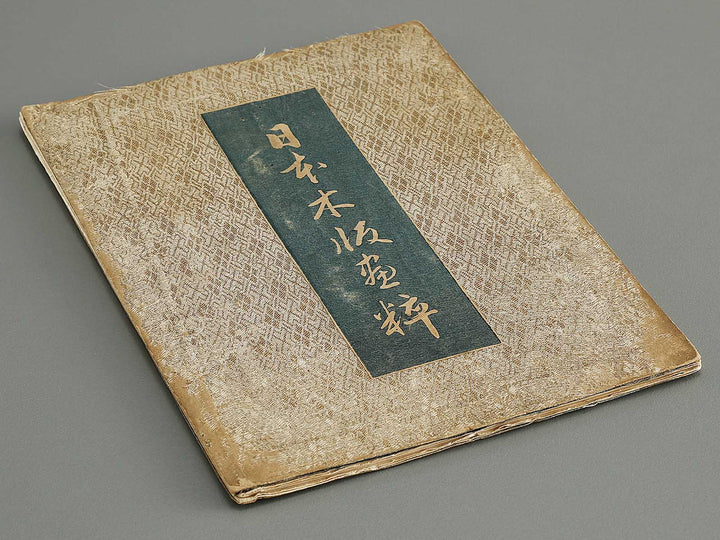 日本木版画粋